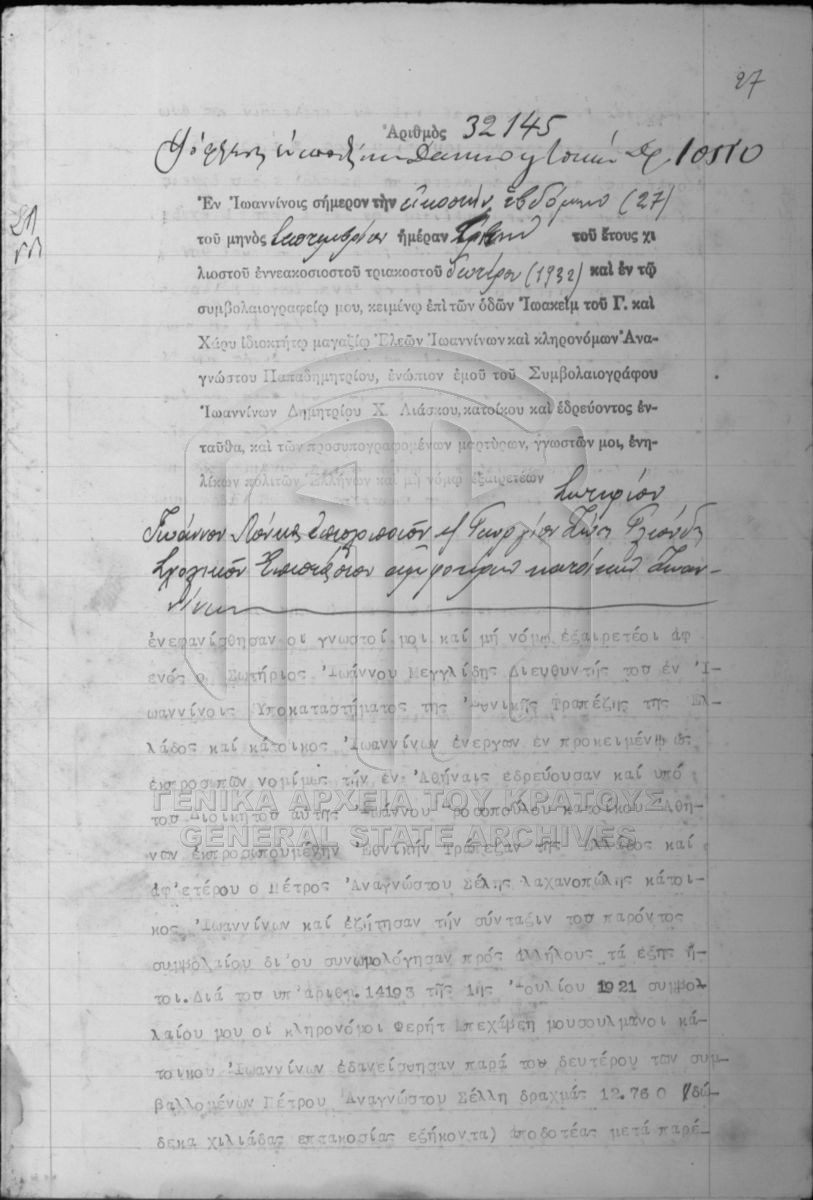 27
Ἀριθμὸς 32145
Δρ. 10510
Ἐν Ἰωαννίνοις σήμερον τὴν εἰκοστὴν ἑβδόμην (27)
τοῦ μηνὸς Σεπτεμβρίου ἡμέραν Τρίτην τοῦ ἔτους χι
λιοστοῦ ἐννεακοσιοστοῦ τριακοστοῦ δευτέρου (1932) καὶ ἐν τῷ
συμβολαιογραφείῳ μου, κειμένῳ ἐπὶ τῶν ὁδῶν Ἰωακεὶμ τοῦ Γ. καὶ
Χάρυ ἰδιοκτήτῳ μαγαζίῳ Ἐλεῶν Ἰωαννίνων καὶ κληρονόμων Ἀνα-
γνώστου Παπαδημητρίου, ἐνώπιον ἐμοῦ τοῦ Συμβολαιογράφου
Ἰωαννίνων Δημητρίου Χ. Λιάσκου, κατοίκου καὶ ἑδρεύοντος ἐν-
ταῦθα, καὶ τῶν προσυπογραφομένων μαρτύρων, γνωστῶν μοι, ἐνη-
λίκων πολιτῶν Ἑλλήνων καὶ μὴ νόμῳ ἐξαιρετέων Σωτηρίου
Ἰωάννου Γεωργίου
ἀμφοτέρων κατοίκων Ἰωαν-
νίνων
ἐνεφανίσθησαν οι γνωστοί μοι καί μή νόμῳ ἐξαιρετέοι ἀφ
ενός ο Σωτήριος Ἰωάννου Μεγγλίδης Διευθυντής του ἐν Ἰ-
ωαννίνοις Υποκαταστήματος της Ἐθνικῆς Τραπέζης τῆς Ελ-
λάδος καί κάτοικος Ἰωαννίνων ἐνεργων ἐν προκειμένῳ ὡς
ἐκπροσωπων νομίμως τήν ἐν Ἀθήναις εδρεύουσαν καί υπό
του Διοικητου αὐτης Ἰωάννου Δροσοπούλου κατοίκου Ἀθη-
νων ἐκπροσωπουμένην Ἐθνικήν Τράπεζαν της Ἑλλάδος καί
ἀφ'ετέρου ο Πέτρος Ἀναγνώστου Σέλης λαχανοπώλης κάτοι-
κος Ἰωαννίνων καί ἐζήτησαν τήν σύνταξιν του παρόντος
συμβολαίου δι'ου συνωμολόγησαν πρός ἀλλήλους τά εξης ἤ-
τοι.Διά του υπ'ἀριθμ.14193 τῆς 1ης Ἰουλίου 1921 συμβο-
λαίου μου οἱ κληρονόμοι Φερήτ Μπεχάβεη μουσουλμανοι κά-
τοικοι Ἰωαννίνων ἐδανείσθησαν παρά του δευτέρου των συμ-
βαλλομένων Πέτρου Ἀναγνώστου Σέλλη δραχμάς 12.760 (δώ-
δεκα χιλιάδας επτακοσίας εξήκοντα) ἀποδοτέας μετά παρέ-
ΓΕΝΙΚΑ ΑΡΧΕΙΑ ΤΟΥ ΚΡΑΤΟΥΣ
GENERAL STATE ARCHIVES